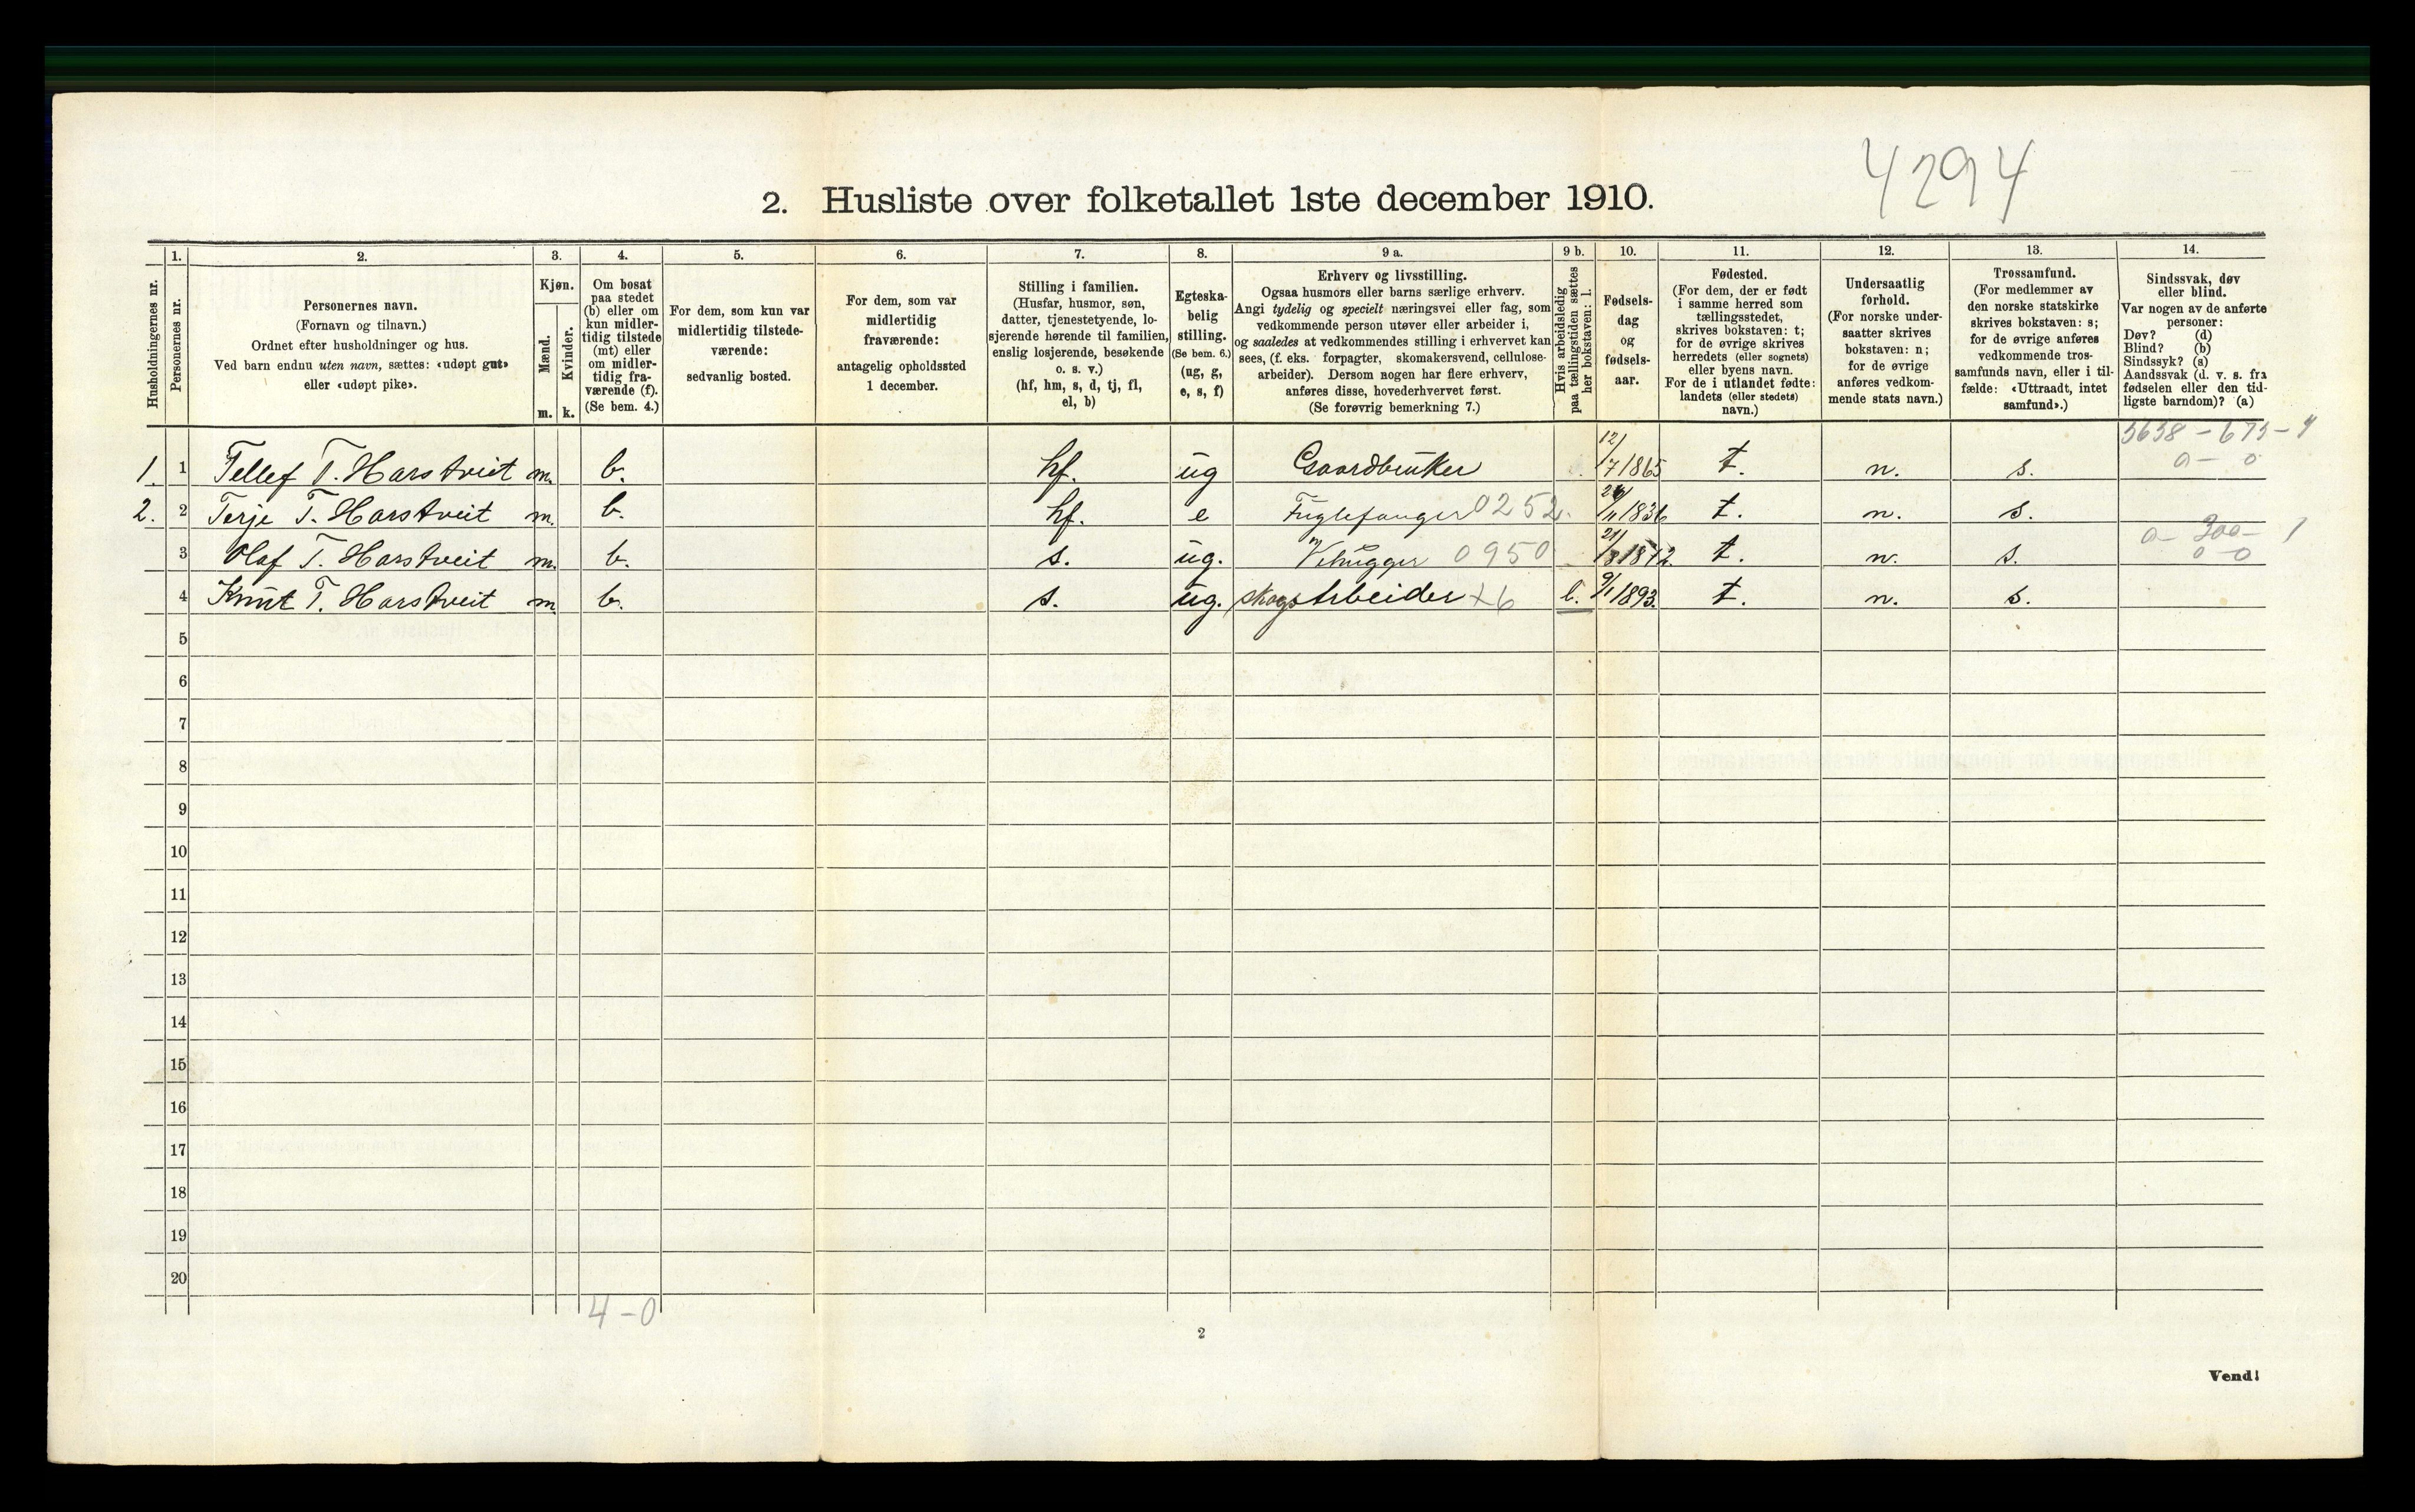 4294
2. Husliste over folketallet 1ste december 1910.
Husholdningernes nr.
1.
Personernes nr.
2.
Personernes navn.
(Fornavn og tilnavn.)
Ordnet efter husholdninger og hus.
Ved barn endnu uten navn, sættes: «udøpt gut»
eller «udøpt pike».
3.
Kjøn.
Mænd.
Kvinder.
m. k.
4.
Om bosat
paa stedet
(b) eller om
kun midler-
tidig tilstede
(mt) eller
om midler-
tidig fra-
værende (f).
(Se bem. 4.)
5.
For dem, som kun var
midlertidig tilstede-
værende:
sedvanlig bosted.
6.
For dem, som var
midlertidig
fraværende:
antagelig opholdssted
1 december.
7.
Stilling i familien.
(Husfar, husmor, søn,
datter, tjenestetyende, lo-
sjerende hørende til familien,
enslig losjerende, besøkende
o. s. v.)
(hf, hm, s, d, tj, fl,
el, b)
8.
Egteska-
belig
stilling.
(Se bem. 6.)
(ug, g,
e, s, f)
9 a.
Erhverv og livsstilling.
Ogsaa husmors eller barns særlige erhverv.
Angi tydelig og specielt næringsvei eller fag, som
vedkommende person utøver eller arbeider i,
og saaledes at vedkommendes stilling i erhvervet kan
sees, (f. eks. forpagter, skomakersvend, cellulose-
arbeider). Dersom nogen har flere erhverv,
anføres disse, hovederhvervet først.
(Se forøvrig bemerkning 7.)
9 b.
Hvis arbeidsledig
paa tællingstiden sættes
her bokstaven: l.
10.
Fødsels-
dag
og
fødsels-
aar.
11.
Fødested.
(For dem, der er født
i samme herred som
tællingsstedet,
skrives bokstaven: t;
for de øvrige skrives
herredets (eller sognets)
eller byens navn.
For de i utlandet fødte:
landets (eller stedets)
navn.)
12.
Undersaatlig
forhold.
(For norske under-
saatter skrives
bokstaven: n;
for de øvrige
anføres vedkom-
mende stats navn.)
13.
Trossamfund.
(For medlemmer av
den norske statskirke
skrives bokstaven: s;
for de øvrige anføres
vedkommende tros-
samfunds navn, eller i til-
fælde: «Uttraadt, intet
samfund».)
14.
Sindssvak, døv
eller blind.
Var nogen av de anførte
personer:
Døv? (d)
Blind? (b)
Sindssyk? (s)
Aandssvak (d. v. s. fra
fødselen eller den tid-
ligste barndom)? (a)
1. 1 Tellef T. Harstveit m. b. hf. ug Gaardbruker 12/7 1865 t. n. s. 0 - 0
2. 2 Terje T. Harstveit m. b. hf. e Fuglefanger 0252 /11 1836 t. n. s.
3 Olaf T. Harstveit m. b. s. ug. Vehugger 0950 t. n. s. 0-0
4 Knut T. Harstveit m. b. s. ug. skogsarbeider l. 9/1 1893. t. n. s.
5
6
7
8
9
10
11
12
13
14
15
16
17
18
19
20
4-0
2
Vend!